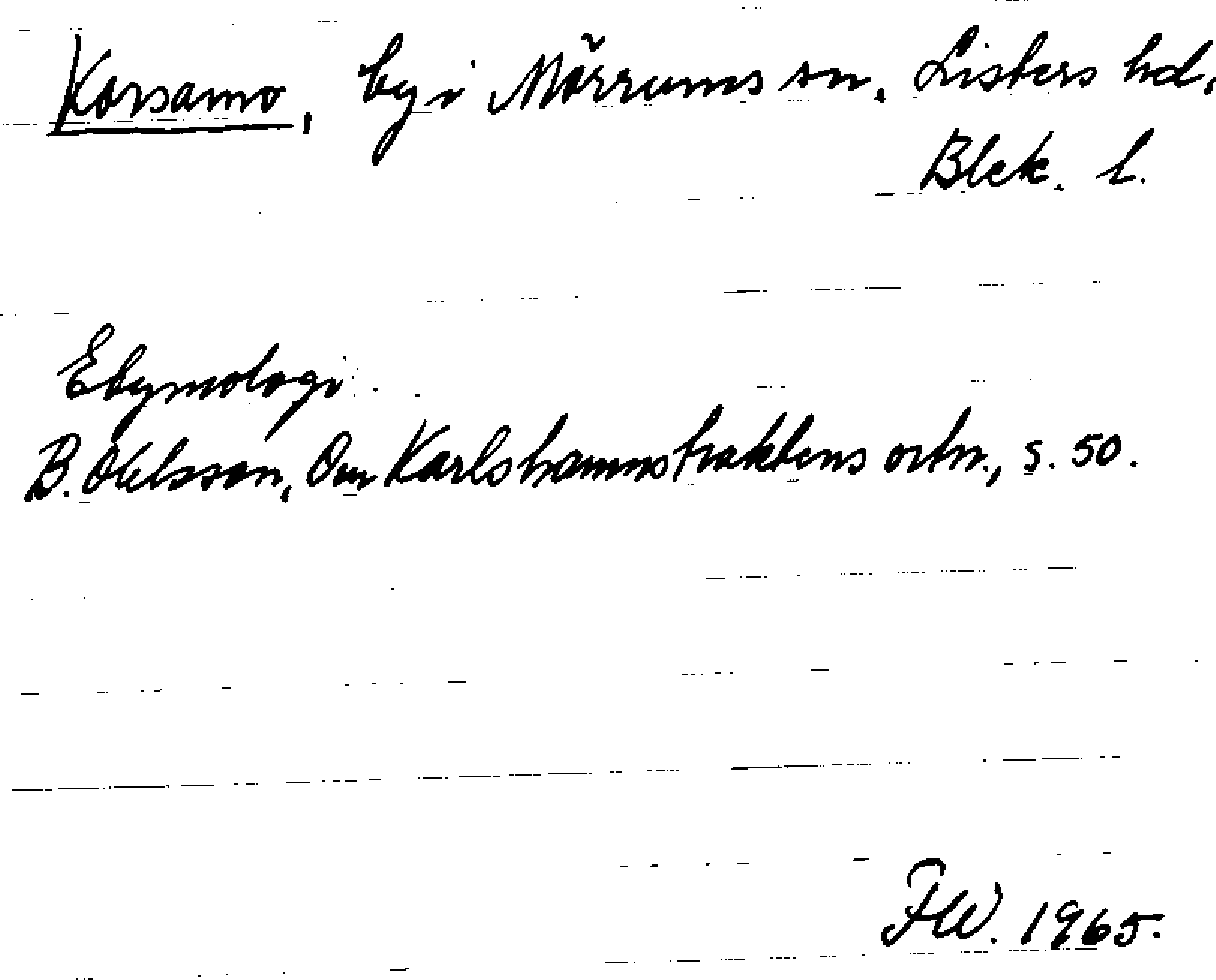 Korsamo, by i Mörrums sn. Listers hd.
Blek. l.
Etymologi.
B. Olsson, Om Karlshamnstraktens ortn., s. 50.
FW. 1965.